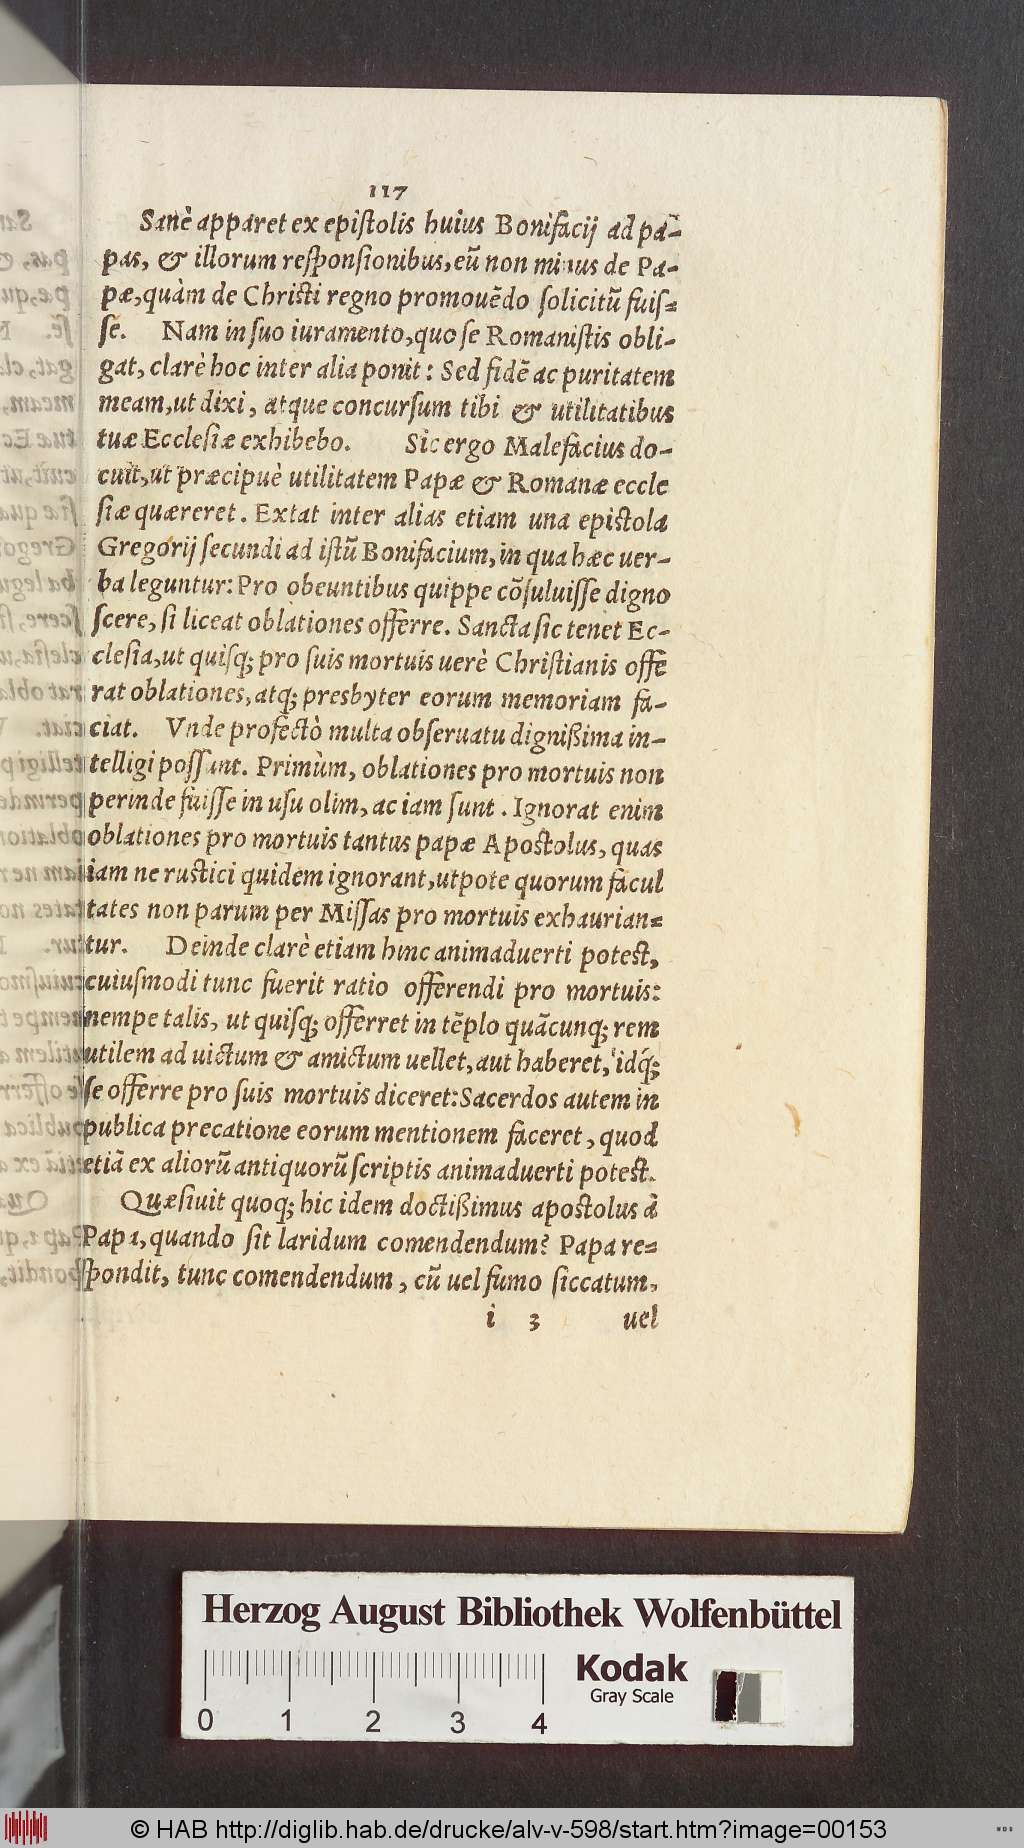 117
Sanè apparet ex epiſtolis huius Bonifacij ad pa-
pas, & illorum reſponſionibus, eũ non minus de Pa-
pæ, quàm de Chriſti regno promouẽdo ſolicitũ fuiſ=
ſe. Nam in ſuo iuramento, quo ſe Romaniſtis obli-
gat, clarè hoc inter alia ponit: Sed fidẽ ac puritatem
meam, ut dixi, atque concurſum tibi & utilitatibus
tuæ Eccleſiæ exhibebo. Sic ergo Malefacius do-
cuit, ut præcipuè utilitatem Papæ & Romanæ eccle
ſiæ quæreret. Extat inter alias etiam una epiſtola
Gregorij ſecundi ad iſtũ Bonifacium, in qua hæc uer-
ba leguntur: Pro obeuntibus quippe cõſuluiſſe digno
ſcere, ſi liceat oblationes offerre. Sancta ſic tenet Ec-
cleſia, ut quiſq; pro ſuis mortuis uerè Chriſtianis offe
rat oblationes, atq; presbyter eorum memoriam fa-
ciat. Vnde profectò multa obſeruatu dignißima in-
telligi poſſunt. Primùm, oblationes pro mortuis non
perinde fuiſſe in uſu olim, ac iam ſunt. Ignorat enim
oblationes pro mortuis tantus papæ Apoſtolus, quas
iam ne ruſtici quidem ignorant, utpote quorum facul
tates non parum per Miſſas pro mortuis exhaurian=
tur. Deinde clarè etiam hinc animaduerti poteſt,
cuiuſmodi tunc fuerit ratio offerendi pro mortuis:
nempe talis, ut quiſq; offerret in tẽplo quãcunq; rem
utilem ad uictum & amictum uellet, aut haberet, idq́;
ſe offerre pro ſuis mortuis diceret: Sacerdos autem in
publica precatione eorum mentionem faceret, quod
etiã ex aliorũ antiquorũ ſcriptis animaduerti poteſt.
Quæſiuit quoq; hic idem doctißimus apoſtolus à
Papa, quando ſit laridum comendendum? Papa re=
ſpondit, tunc comendendum, cũ uel fumo ſiccatum,
i 3 uel
Herzog August Bibliothek Wolfenbüttel
Kodak
Gray Scale
0 1 2 3 4
© HAB http://diglib.hab.de/drucke/alv-v-598/start.htm?image=00153